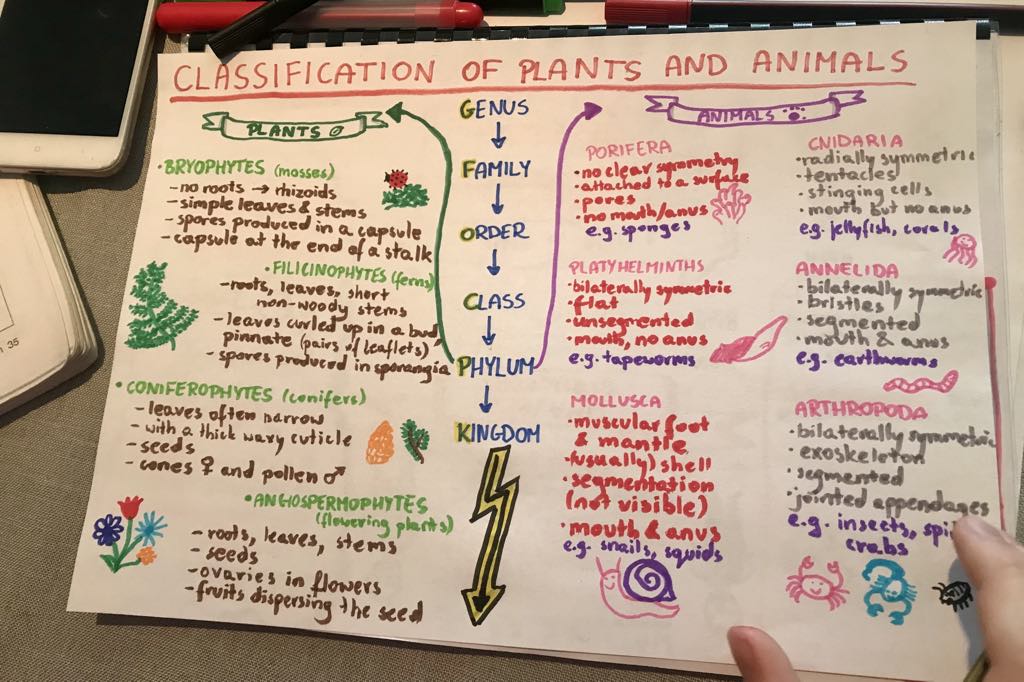 CLASSIFICATION OF PLANTS AND ANIMALS
PLANTS
• BRYOPHYTES (mosses)
- no roots → rhizoids
- simple leaves & stems
- spores produced in a capsule
- capsule at the end of a stalk
• FILICINOPHYTES (ferns)
- roots, leaves, short
non-woody stems
- leaves curled up in a bud
pinnate (pairs of leaflets)
- spores produced in sporangia
• CONIFEROPHYTES (conifers)
- leaves often narrow
- with a thick waxy cuticle
- seeds
- cones ♀ and pollen ♂
• ANGIOSPERMOPHYTES
(flowering plants)
- roots, leaves, stems
- seeds
- ovaries in flowers
- fruits dispersing the seed
GENUS
↓
FAMILY
↓
ORDER
↓
CLASS
↓
PHYLUM
↓
KINGDOM
ANIMALS
PORIFERA
• no clear symmetry
• attached to a surface
• pores
• no mouth/anus
e.g. sponges
PLATYHELMINTHS
• bilaterally symmetric
• flat
• unsegmented
• mouth, no anus
e.g. tapeworms
MOLLUSCA
• muscular foot
& mantle
• (usually) shell
• segmentation
(not visible)
• mouth & anus
e.g. snails, squids
CNIDARIA
• radially symmetric
• tentacles
• stinging cells
• mouth but no anus
e.g. jellyfish, corals
ANNELIDA
• bilaterally symmetric
• bristles
• segmented
• mouth & anus
e.g. earthworms
ARTHROPODA
• bilaterally symmetric
• exoskeleton
• segmented
• jointed appendages
e.g. insects, spi
crabs
35